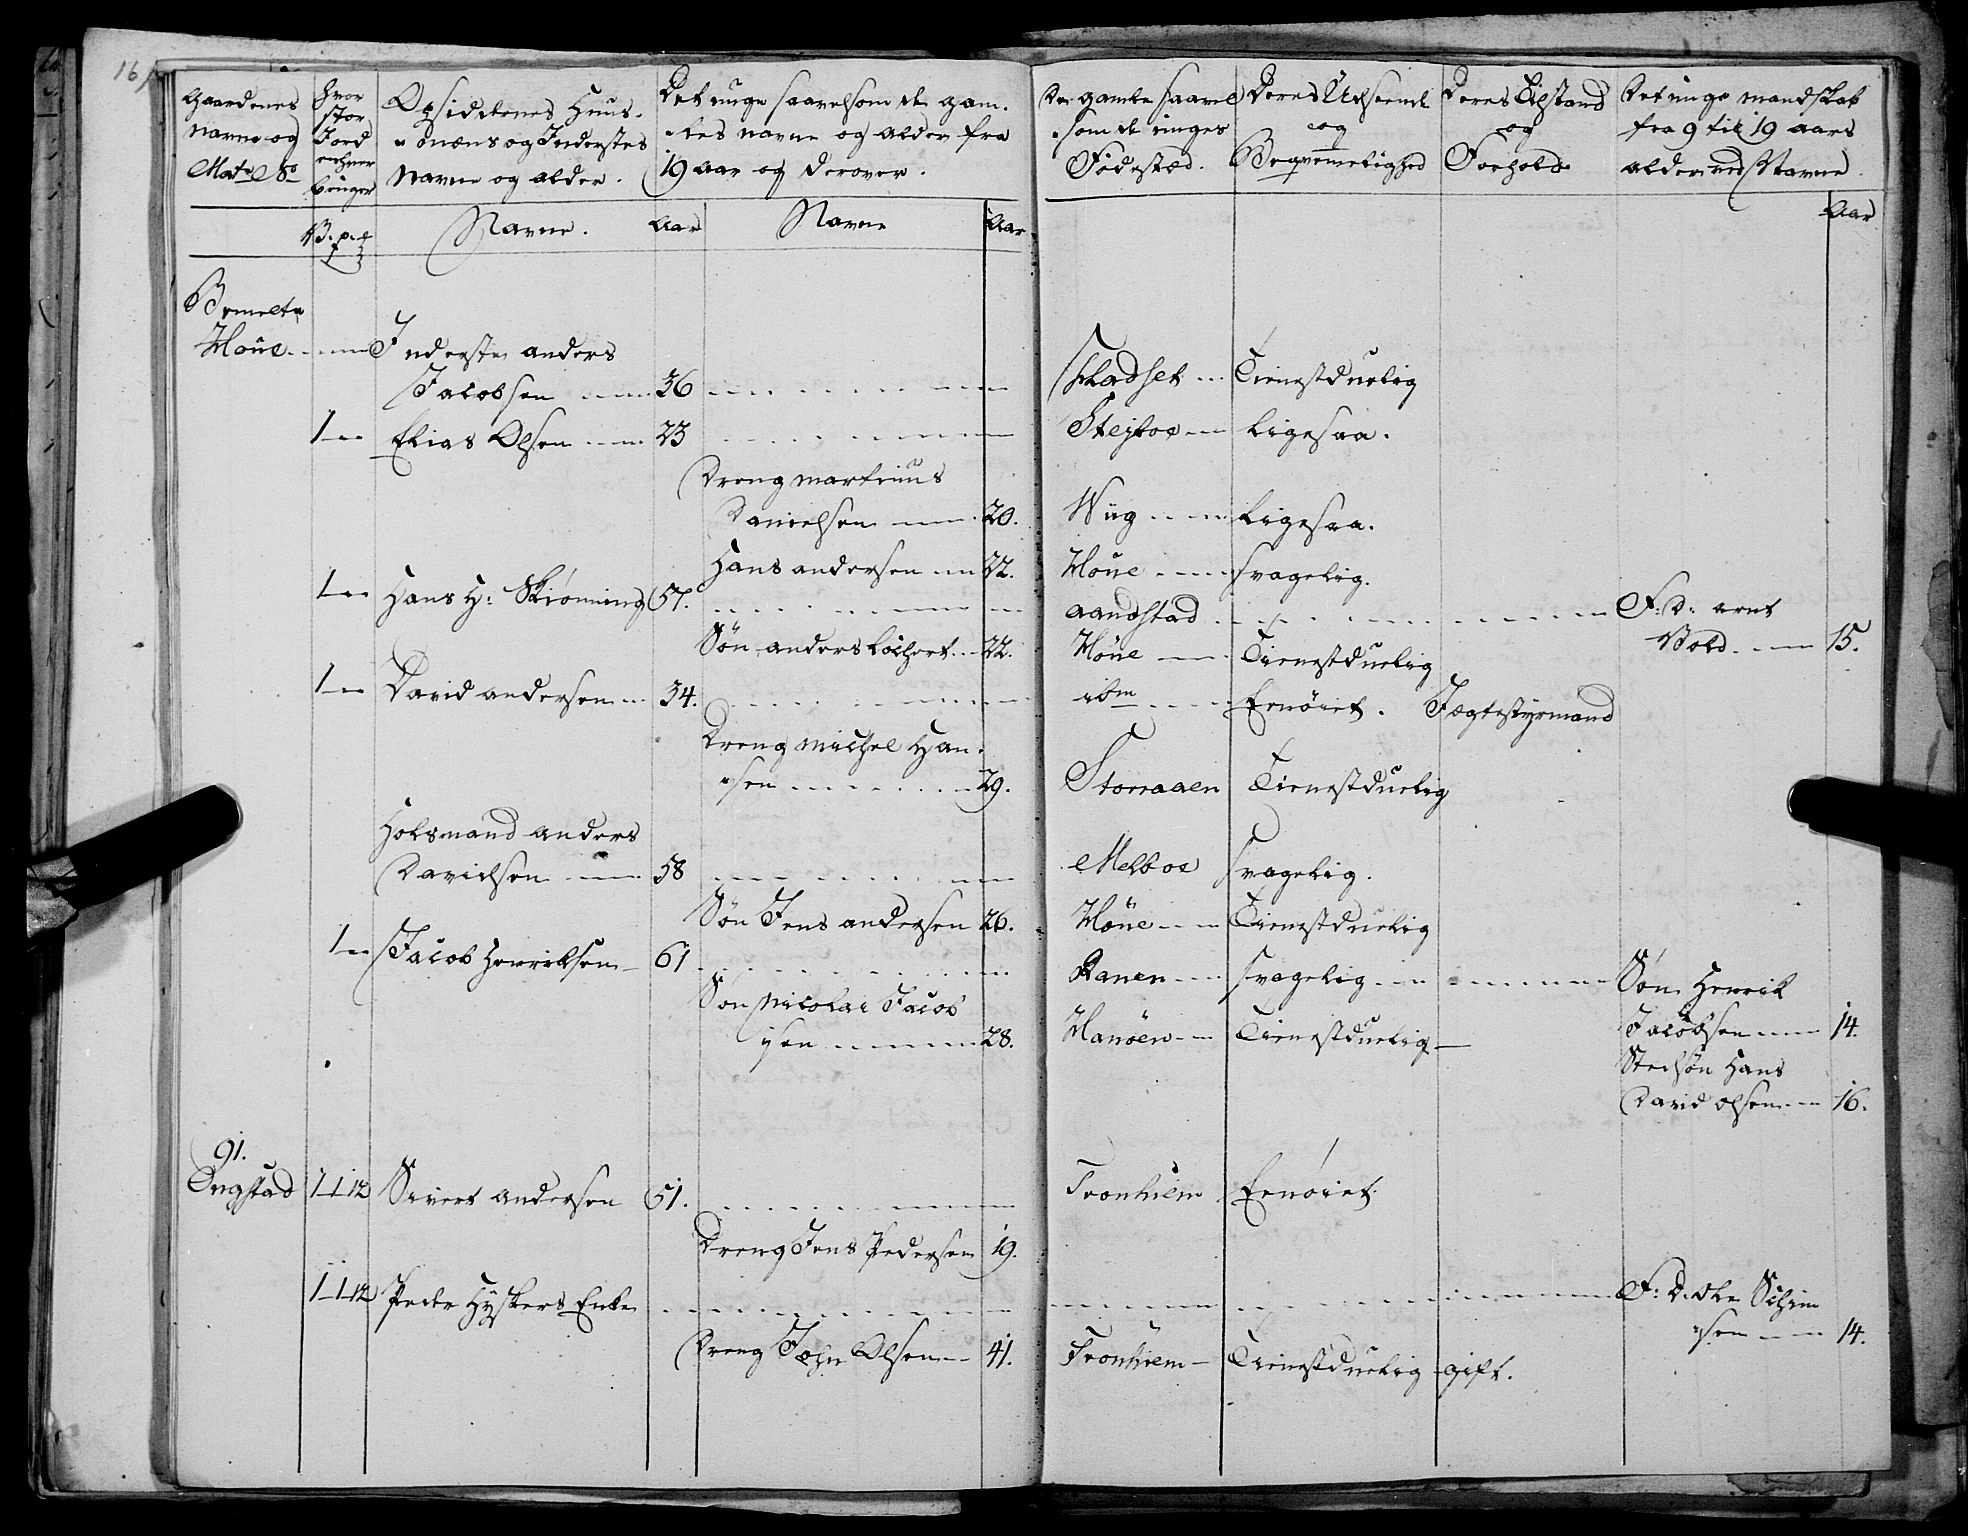 16
Gaardenes
Navne og
Mat. No
Hvor
stor
Jord
enhver
bruger
Opsiddenes Huus-
mæns og Inderstes
Navne og alder.
Det unge saavelsom de gam-
les navne og alder fra
19 aar og derover.
De gamle saavel
som de unges
Fødested.
Deres Udseende
og
Beqvemmelighed
Deres Tilstand
og
Forhold
Det unge mandskab
fra 9 til 19 aars
alder ved Navne.
B. p. Navne. Aar Navne Aar
Aar
Bemelte
Houe Inderste anders
Jacobsen 36 Fladset Tienestduelig
1 Elias Olsen 23 Steiloe ligesaa.
Dreng martinus
Danielsen 20. Wiig ligesaa.
Hans andersen 22. Houe svagelig.
1 Hans H: Skiønning 57. aandstad F: D: arnt
Vold 15.
Søn anders Lochert 22. Houe Tienestduelig
1 David andersen 34. ibm Enøiet. Jægtestyrmand
Dreng Michel Han-
sen 29. Storraaen Tienestduelig
Holsmand anders
Davidsen 58 Melboe svagelig.
Søn Jens andersen 26. Houe Tienestduelig
1 Jacob Henriksen 61 Ranen svagelig Søn Henrik
Jacobsen 14.
Søn Nicolai Jacob
sen 28. Hanøen Tienestduelig
Stedsøn Hans
David olsen 16.
91.
Ongstad 1 1 12 Sivert andersen 51. Tronhiem Enøiet.
Dreng Jens Pedersen 19.
1 1 12 Peder Hyskers Enke F: D. Ole Schim
sen 14.
Dreng John Olsen 41. Tronhiem Tienestduelig gift.